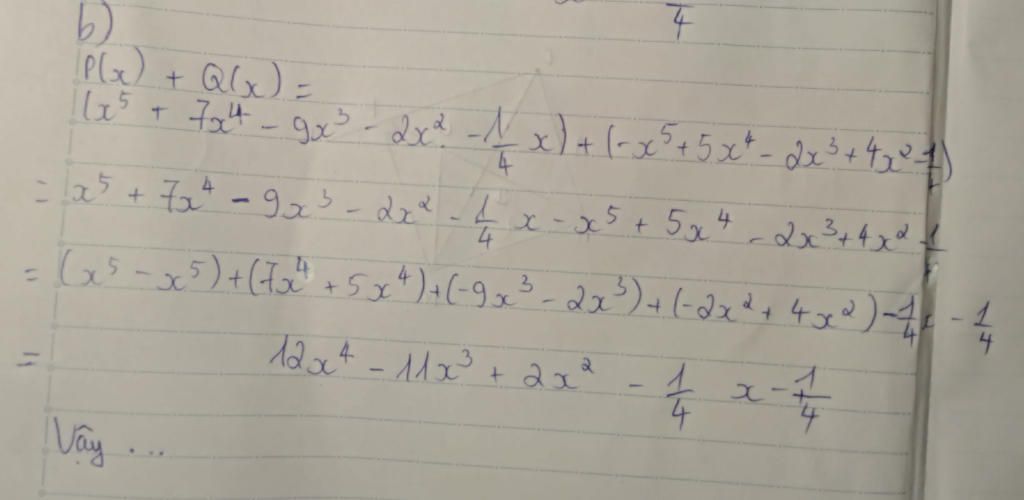 4
b)
P(x) + Q(x) =
(x⁵ + 7x⁴ - 9x³ - 2x² - 1/4 x) + (-x⁵ + 5x⁴ - 2x³ + 4x² - 1/4)
= x⁵ + 7x⁴ - 9x³ - 2x² - 1/4 x - x⁵ + 5x⁴ - 2x³ + 4x² - 1/4
= (x⁵ - x⁵) + (7x⁴ + 5x⁴) + (-9x³ - 2x³) + (-2x² + 4x²) - 1/4 x - 1/4
= 12x⁴ - 11x³ + 2x² - 1/4 x - 1/4
Vậy ...